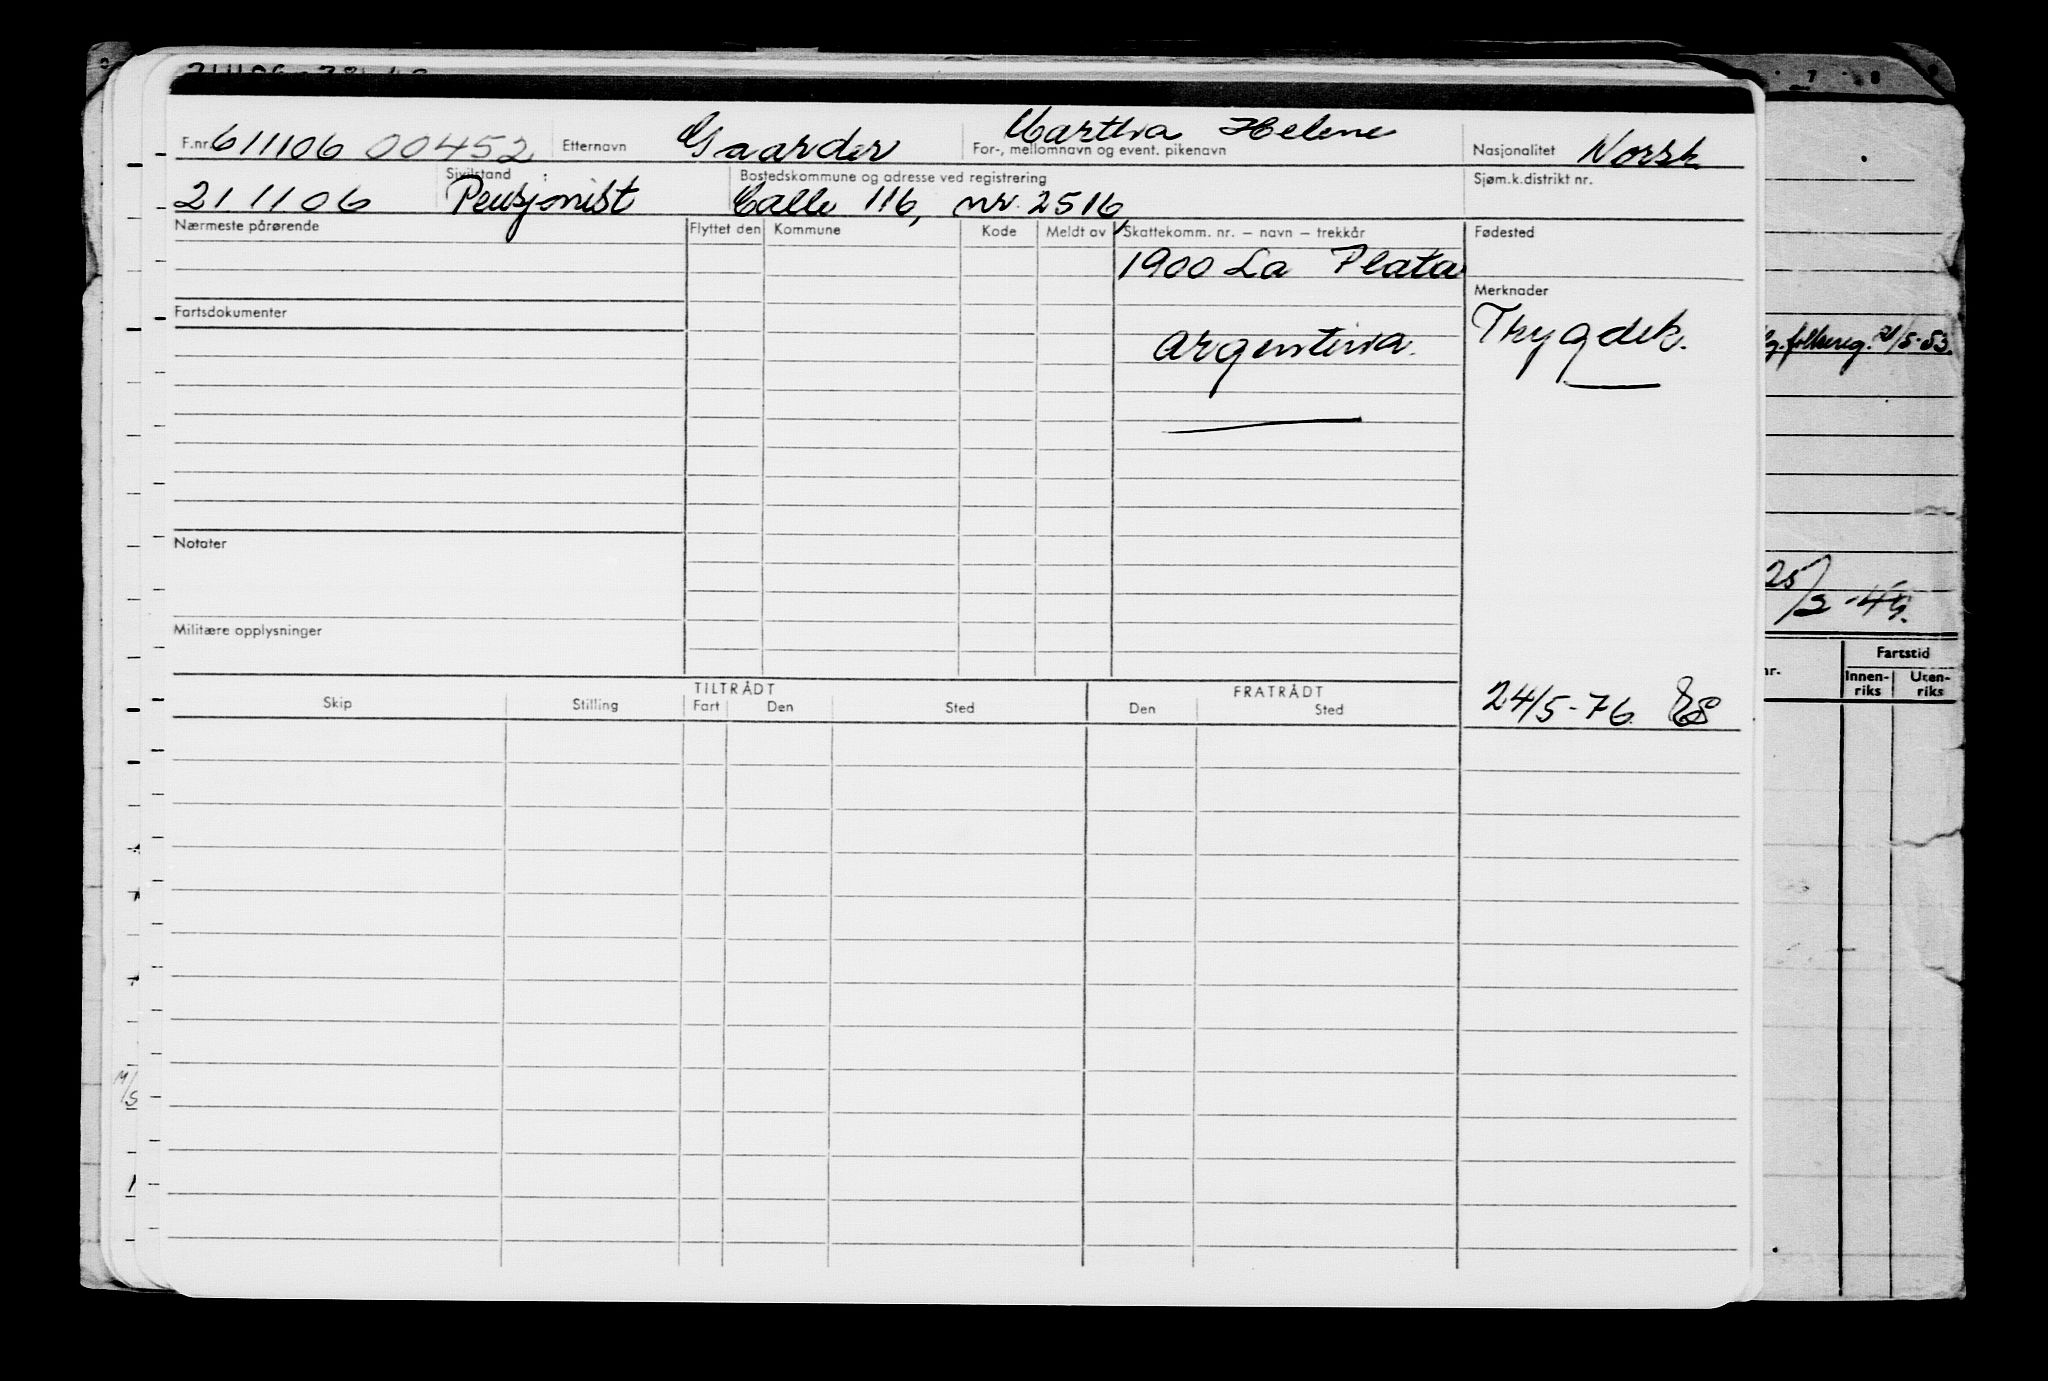 F.nr. 611106 00452 Etternavn Gaarder For-, mellomnavn og event. pikenavn Martha Helene Nasjonalitet Norsk
211106 Sivilstand : Pensjonist Bostedskommune og adresse ved registrering Calle 116, nr. 2516, Sjøm.k.distrikt nr.
Nærmeste pårørende Flyttet den Kommune Kode Meldt av Skattekomm. nr. – navn – trekkår Fødested
1900 La Plata
Merknader
Fartsdokumenter Argentina. Trygdek.
Notater
Militære opplysninger
TILTRÅDT FRATRÅDT
Skip Stilling Fart Den Sted Den Sted
24/5-76
7 8
folkereg. 21/5-53.
25/2-45.
nr. Fartstid
Innen-riks Uten-riks